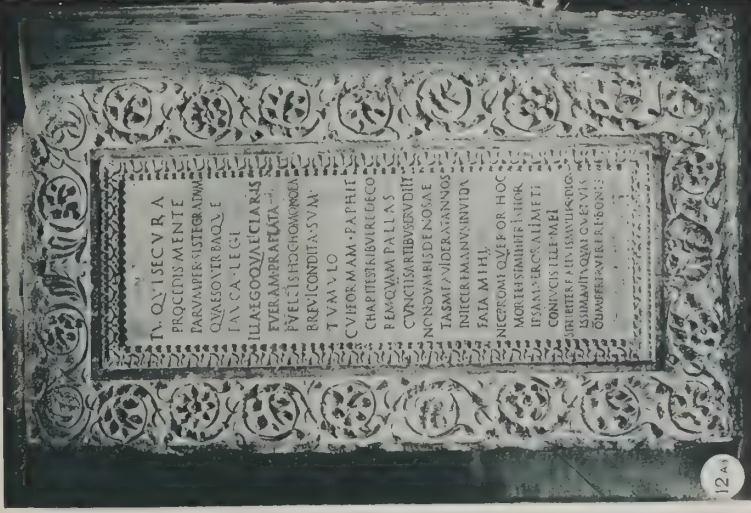 TV. QVI SECVRA
PROCEDIS MENTE
PARVMPER·SISTE GRADVM
QVAESO VERBAQVE
PAVCA·LEGE
ILLA EGO QVAE CLARIS
FVERAM·PRAELATA
PVELLIS HOC HOMONOEA
BREVI CONDITA·SVM·
TVMVLO
CVI FORMAM·PAPHIE
CHARITES TRIBVERE DECO
REM QVAM PALLAS
CVNCTIS ARTIBVS ERVDIIT
NONDVM BIS DENOS AE
TAS MEA VIDERAT ANNOS
INIECERE MANVS INVIDA
FATA MIHI,
NEC PRO ME QVEROR HOC
MORTE EST MIHI TRISTIOR
IPSA MAEROR ATIMETI
CONIVGIS ILLE MEI
SIT TIBI TERRA LEVIS MVLIER DIGN
ISSIMA VITA QVAEQVE TVIS
OLIM PERFRVERERE BONIS
12A